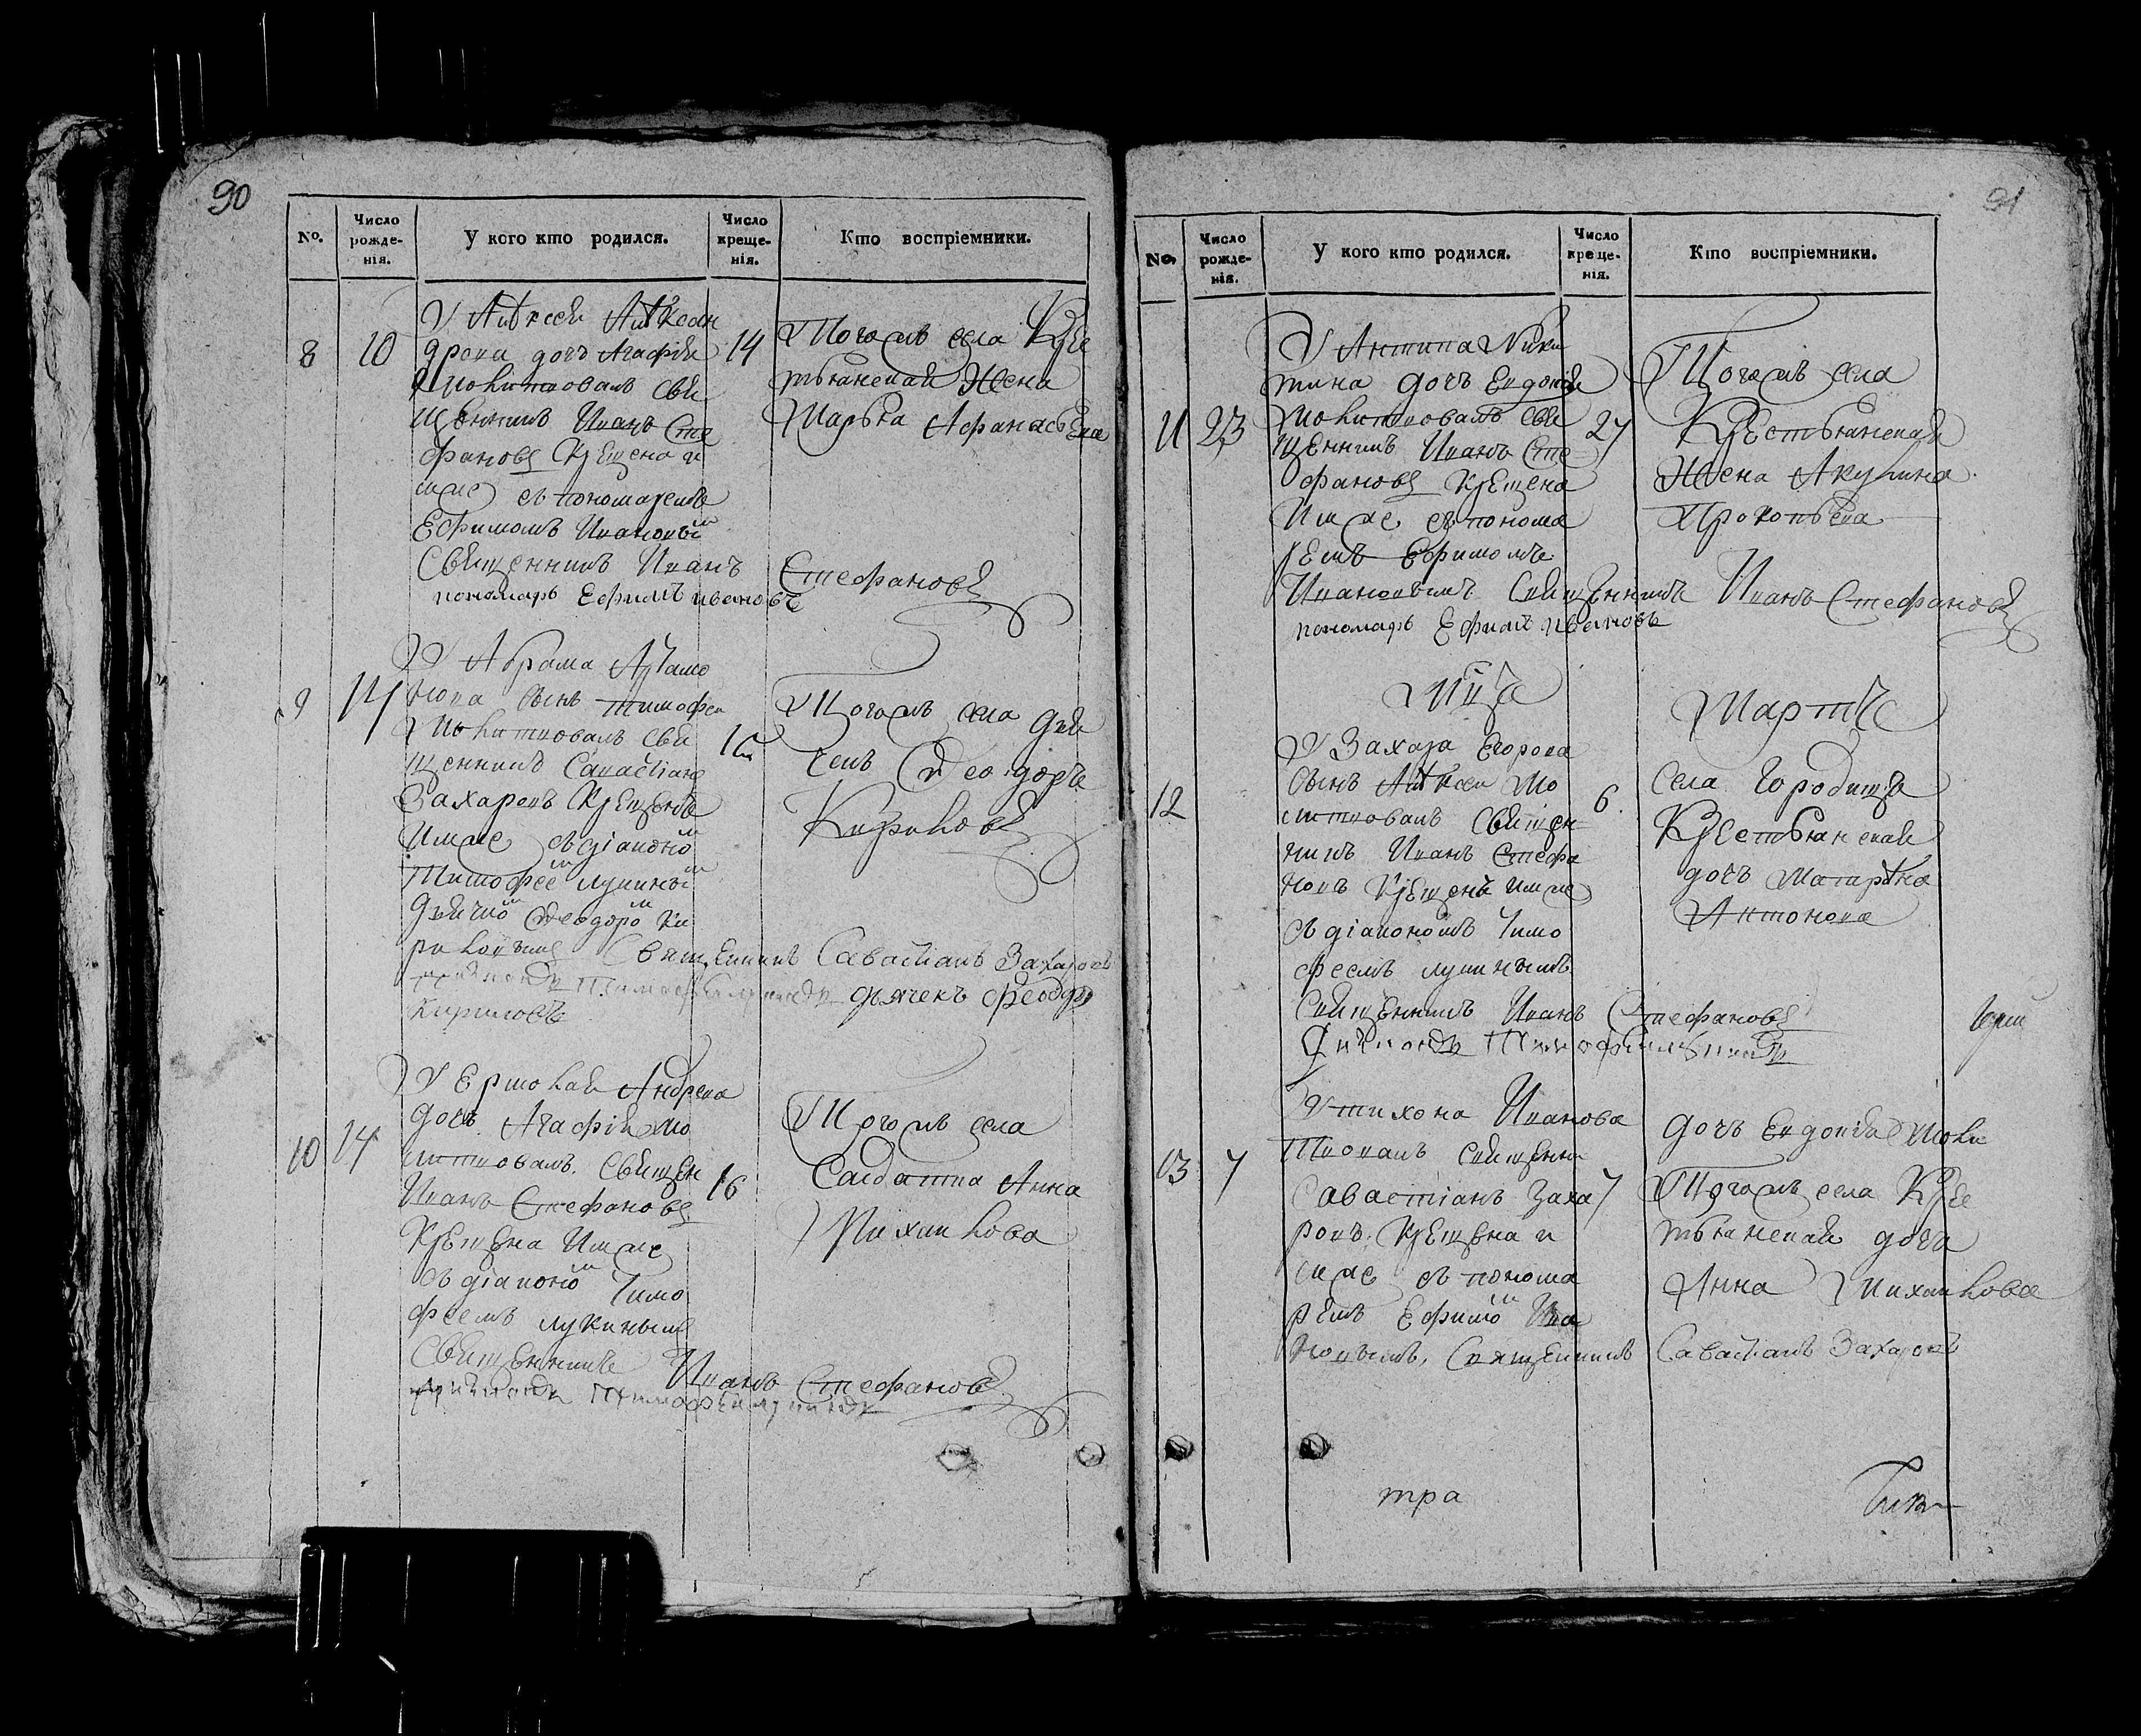 90
No.
Число рожде-нія.
У кого кто родился.
Число креще-нія.
Кто воспріемники.
8
10
У Алѣксея Алѣксан
дрова дочь Агафія
молитвовалъ свя
щенникъ Иванъ Сте
фановъ крещена и
имже съ пономаремъ
Ефимомъ Ивановым
Священникъ Иванъ Стефановъ
пономарь Ефимъ ивановъ
14
Тогожъ села Кре
стьянская Жена
Марья Афанасьева
9
14
У Абрама Артамо
нова сынъ тимофеи
Молитвовалъ свя
щенникъ Савастьянъ
Захаровъ крещенъ
имже съ діаконом
Тимофеем лукиным
дьячком Феодором Ки
риловымъ Священникъ Савастьянъ Захаровъ
дьячекъ феодоръ
Кириловъ
16
Тогожъ села дья
чекъ Феодоръ
Кириловъ
10
14
У Ермолая Андреева
дочь Агафія мо
литвовалъ Священ
Иванъ Стефановъ
Крещена Имже
съ діаконом Тимо
феемъ лукинымъ
Священникъ Иванъ Стефановъ
16
Тогожъ села
Салдатка Анна
Михаилова
91
No.
Число рожде-нія.
У кого кто родился.
Число креще-нія.
Кто воспріемники.
11
23
У Антипа Ники
тина дочь Евдокія
молитвовалъ свя
щенникъ Иванъ Сте
фановъ Крещена
Имже съ понома
ремъ Ефимомъ
Ивановымъ Священникъ Иванъ Стефановъ
пономарь Ефимъ ивановъ
27
Тогожъ села
Крестьянская
Жена Акулина
Прокопьева
Мца
Мартъ
12
У Захара Егорова
сынъ Алѣксеи Мо
литвовалъ Священ
никъ Иванъ Стефа
новъ Крещенъ имже
съ діакономъ Тимо
феемъ лукинымъ
Священникъ Иванъ Стефановъ
6.
Села Городища
Крестьянская
дочь Матрѣна
Антонова
13
7
У тихона Иванова дочь Евдокія Моли
Твовалъ священни
Савастіанъ Заха
ровъ. Крещена и
имже съ понома
ремъ Ефимом Ива
новымъ. Священникъ Савастьянъ Захаровъ
7
Тогожъ села Кре
стьянская дочь
Анна Михаилова
тра